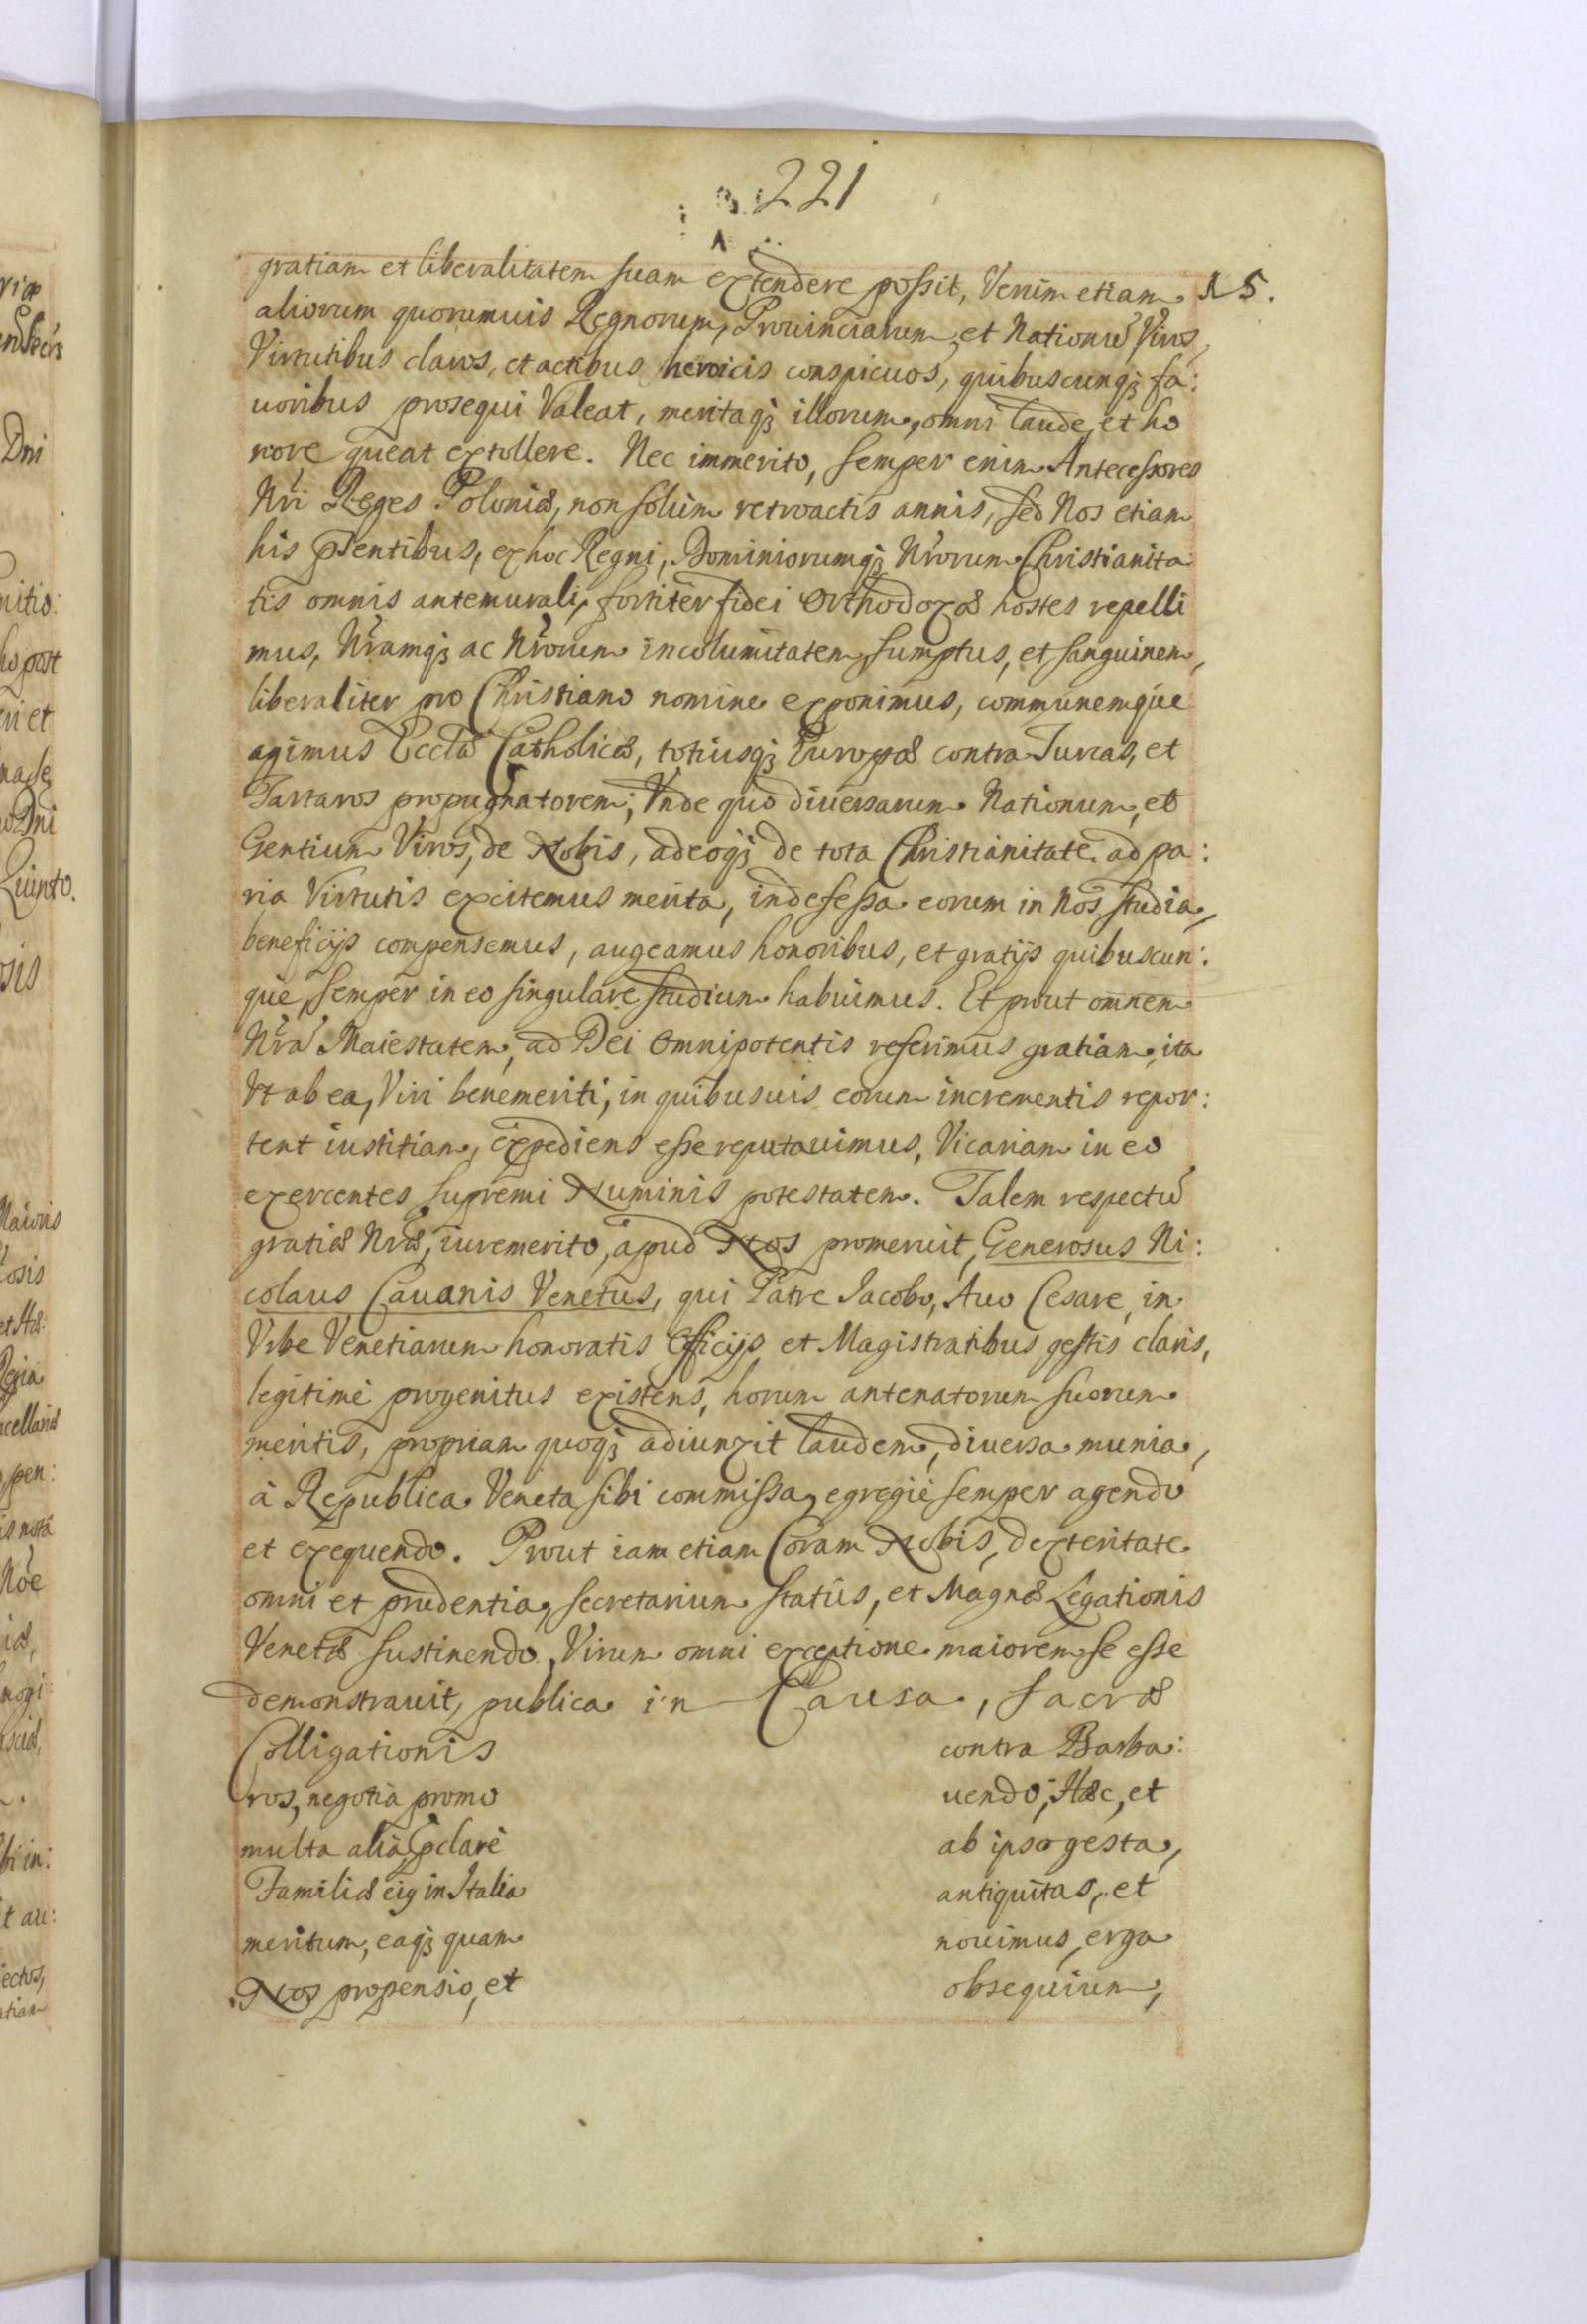 221
gratiam et liberalitatem suam extendere possit, Verùm etiam 15.
aliorum quorumuis Regnorum, Prouinciarum, et Nationũ Viros,
Virtutibus claros, et actibus heroicis conspicuos, quibuscunqꝫ fa:
uoribus prosequi Valeat, meritaqꝫ illorum, omni laude, et ho
nore queat extollere. Nec immerito, semper enim Antecessores
Nr̃i Reges Poloniæ, non solùm retroactis annis, sed Nos etiam
his p̃sentibus, ex hoc Regni, Dominiorumqꝫ Nr̃orum Christianita
tis omnis antemurali, fortitèr fidei Orthodoxæ hostes repelli
mus, Nr̃amqꝫ ac Nr̃orum incolumitatem, sumptus, et sanguinem,
liberaliter pro Christiano nomine exponimus, communemque
agimus Eccłæ Catholicæ, totiusqꝫ Europæ contra Turcas, et
Tartaros propugnatorem; Vnde quò diuersarum Nationum, et
Gentium Viros, de Nobis, adeoqꝫ de tota Christianitate ad pa:
ria Virtutis excitemus merita, indefessa eorum in Nos studia,
beneficijs compensemus, augeamus honoribus, et gratijs quibuscun:
que, semper in eo singulare studium habuimus. Et prout omnem
Nr̃ã Maiestatem, ad Dei Omnipotentis referimus gratiam, ita
Vt ab ea, Viri benemeriti, in quibusuis eorum incrementis repor:
tent iustitiam, expediens esse reputauimus, Vicariam in eo
exercentes supremi Numinis potestatem. Talem respectũ
gratiæ Nr̃æ, iuremerito, apud Nos promeruit, Generosus Ni:
colaus Cauanis Venetus, qui Patre Iacobo, Auo Cesare, in
Vrbe Venetiarum honoratis Officijs et Magistratibus gestis claris,
legitimè progenitus existens, horum antenatorum suorum
meritis, propriam quoqꝫ adiunxit laudem, diuersa munia,
à Republica Veneta sibi commissa, egregiè semper agendo
et exequendo. Prout iam etiam Coram Nobis, dexteritate
omni et prudentia, secretarium statûs, et Magnæ Legationis
Venetæ sustinendo, Virum omni exceptione maiorem se esse
demonstrauit, publica in Causa, sacræ
Colligationis contra Barba:
ros, negotia promo uendo; Hæc, et
multa alia, p̃clarè ab ipso gesta,
Familiæ eiꝰ in Italia antiquitas, et
meritum, eaqꝫ quam nouimus, erga
Nos propensio, et obsequium,